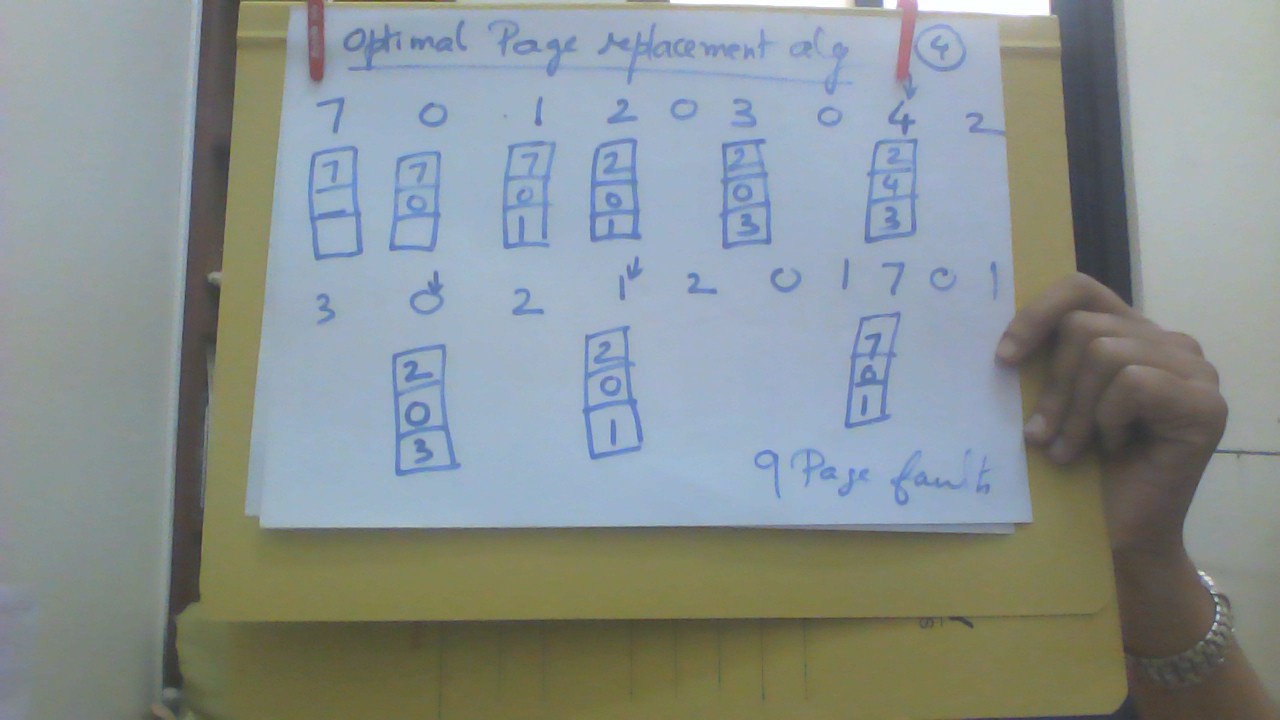 Optimal Page replacement alg 4
7 0 1 2 0 3 0 4 2
7 7 7 2 2 2
0 0 0 0 4
1 1 3 3
3 0 2 1 2 0 1 7 0 1
2 2 7
0 0 0
3 1 1
9 Page faults